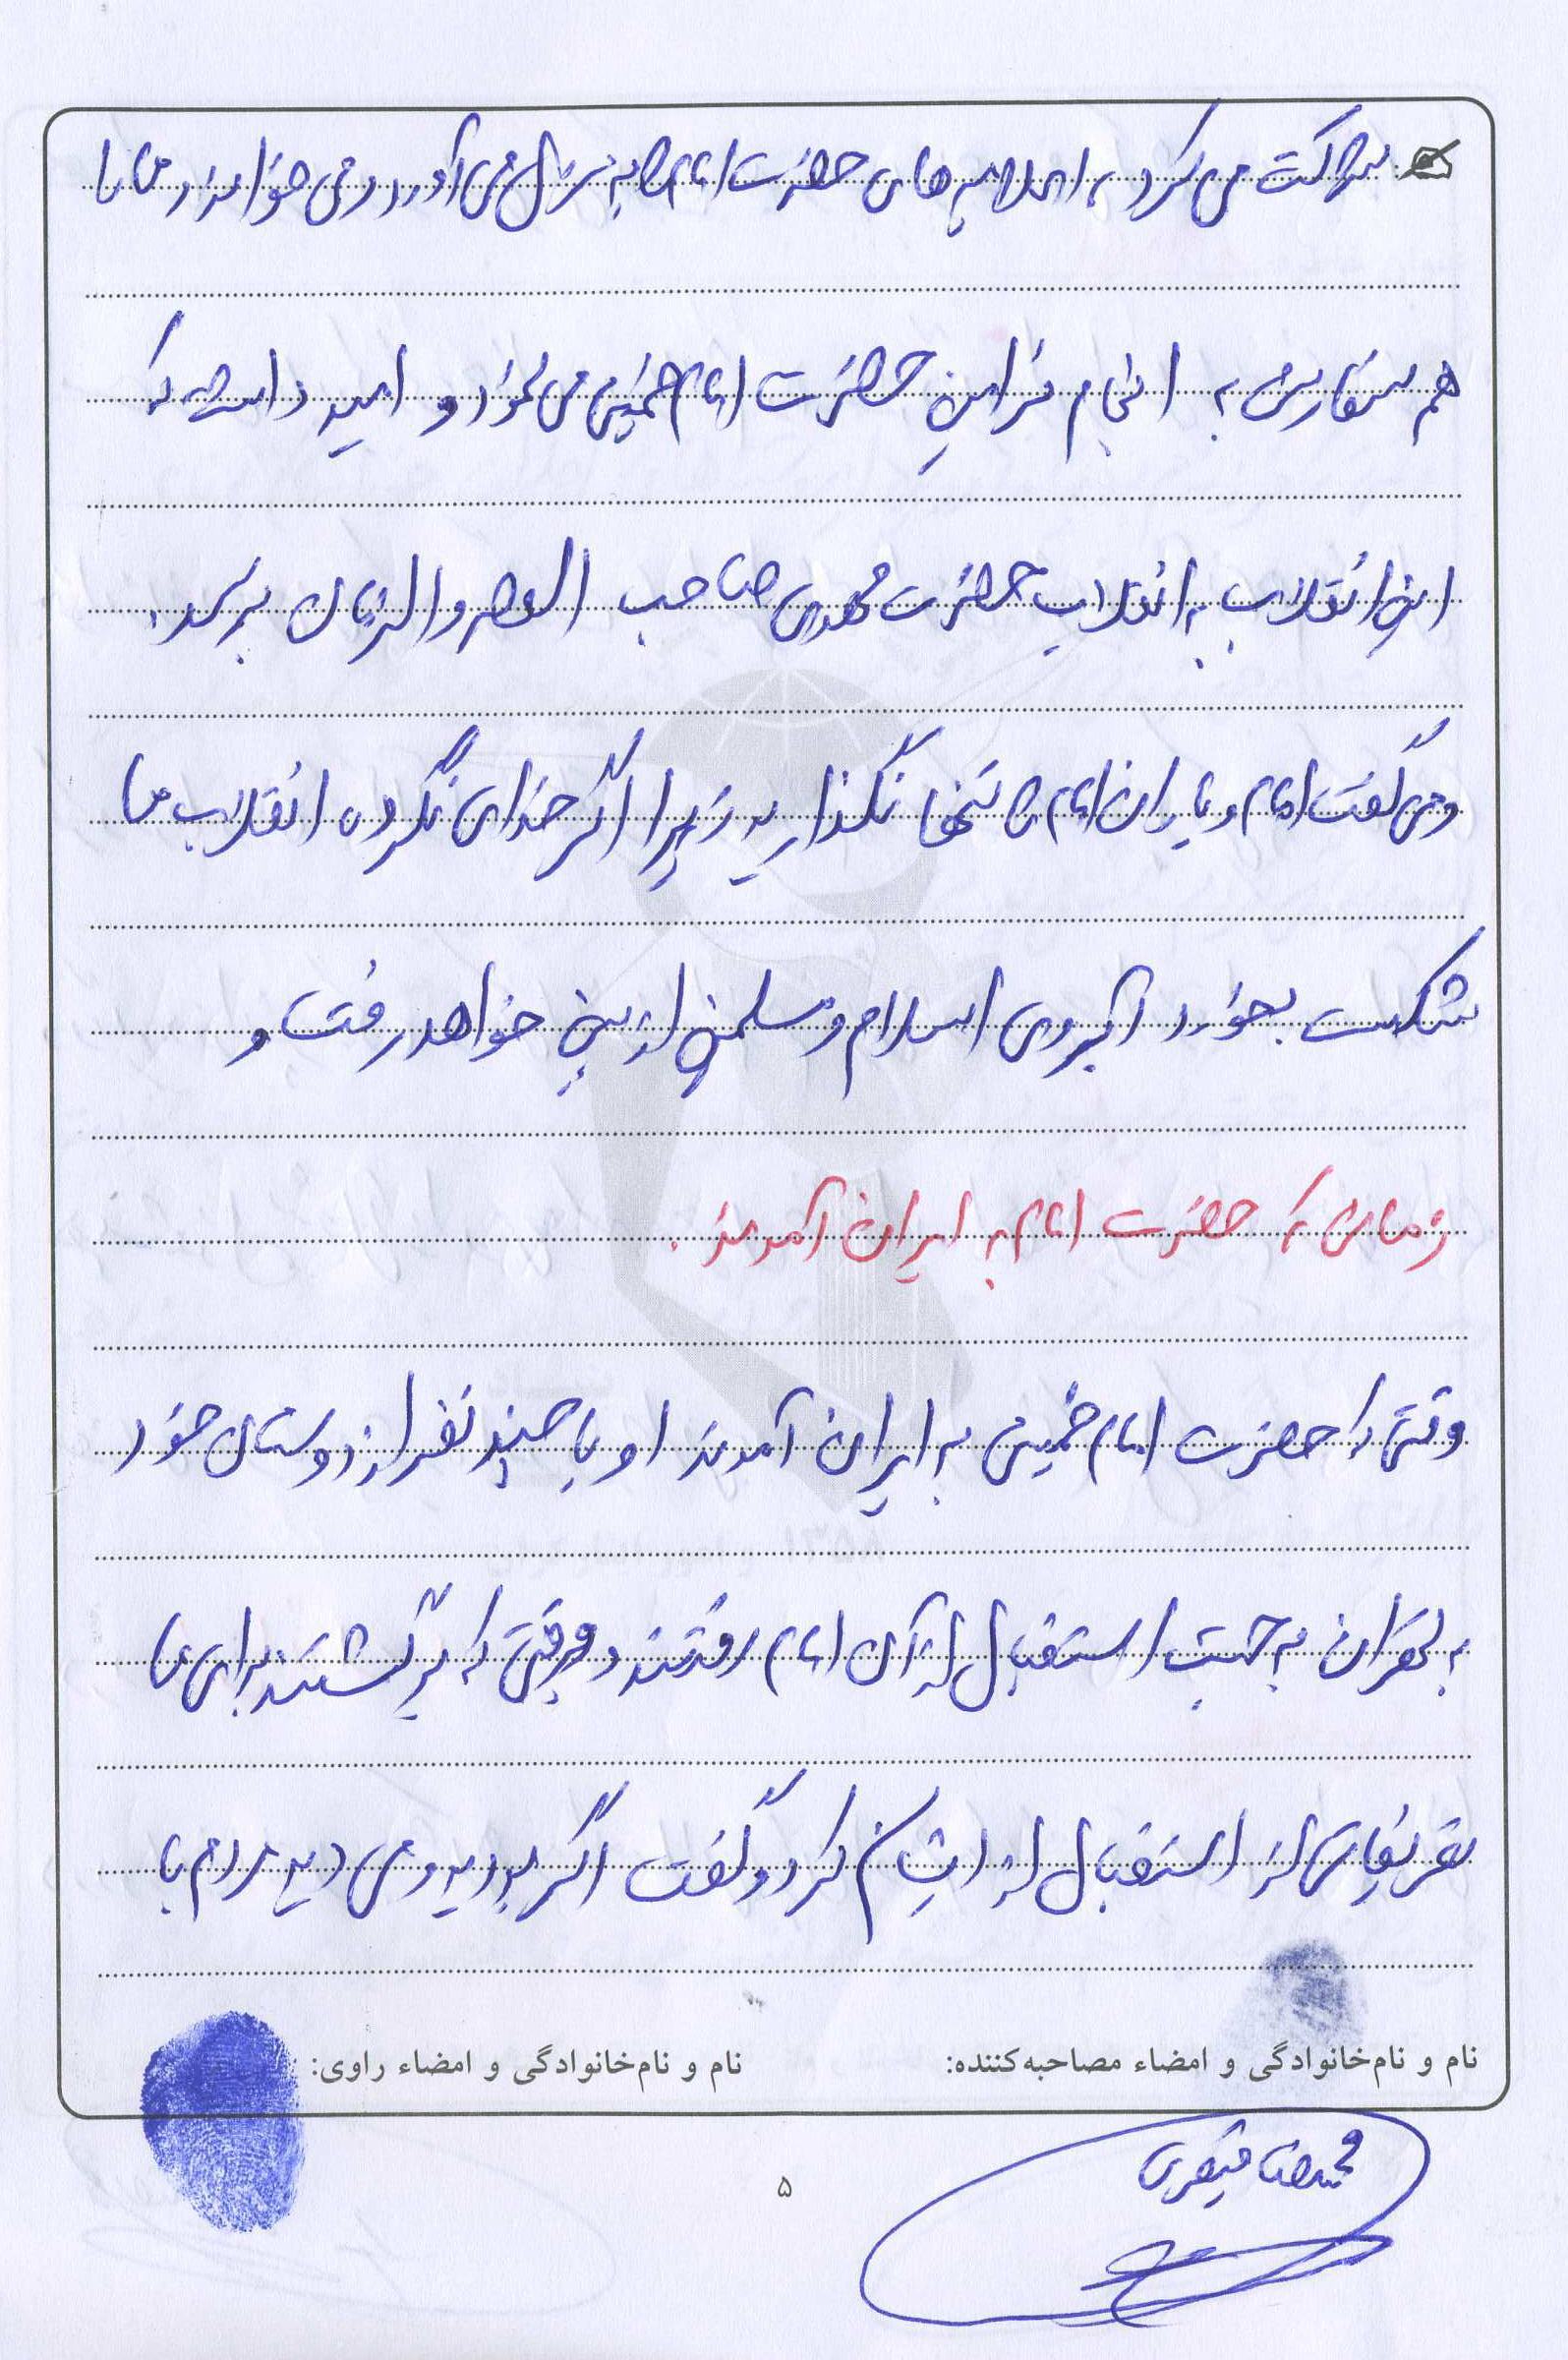 شرکت می کرد، اعلامیه های حضرت امام را به منزل می آورد و می خواند و ما را
هم سفارش به انجام فرامین حضرت امام خمینی می نمود و امید داشت که
این انقلاب به انقلاب حضرت مهدی صاحب العصر والزمان برسد.
و می گفت امام و یاران امام را تنها نگذارید زیرا اگر خدای نکرده انقلاب ما
شکست بخورد آبروی اسلام و مسلمین از بین خواهد رفت و
زمانی که حضرت امام به ایران آمدند.
وقتی که حضرت امام خمینی به ایران آمدند او با چند نفر از دوستان خود
به تهران به جهت استقبال از آن امام رفتند و وقتی که برگشتند برای ما
تعریفهای از استقبال از ایشان کرد و گفت اگر بودید و می دید مردم با
نام و نام‌خانوادگی و امضاء مصاحبه‌کننده:
نام و نام‌خانوادگی و امضاء راوی:
محمدرضا
۵